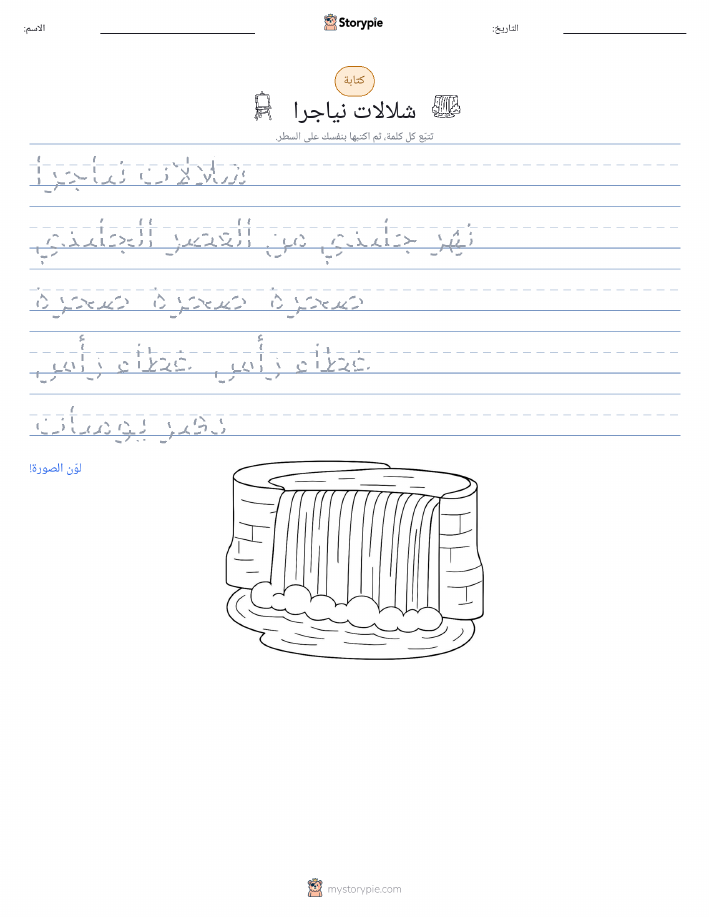 Storypie
الاسم:
التاريخ:
كتابة
شلالات نياجرا
تتبّع كل كلمة، ثم اكتبها بنفسك على السطر.
شلالات نياجرا
نهر جليدي من العصر الجليدي
صخرة صخرة صخرة
غطاء رأس غطاء رأس
لوّن الصورة!
mystorypie.com